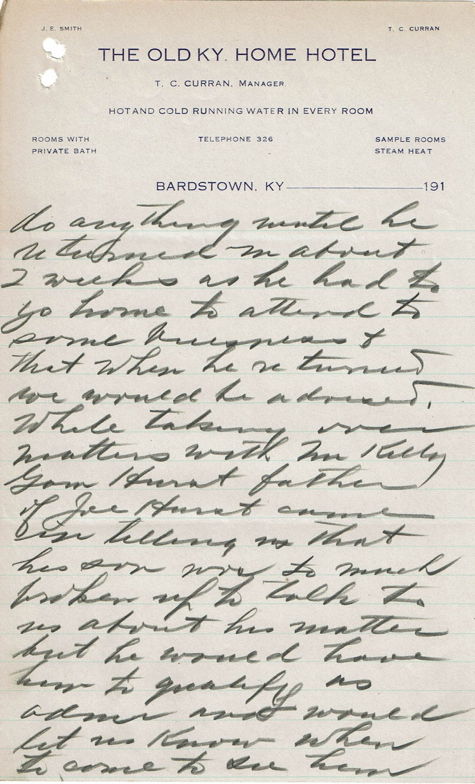 J. E. SMITH
T. C. CURRAN
THE OLD KY. HOME HOTEL
T. C. CURRAN, MANAGER.
HOT AND COLD RUNNING WATER IN EVERY ROOM
ROOMS WITH
PRIVATE BATH
TELEPHONE 326
SAMPLE ROOMS
STEAM HEAT
BARDSTOWN, KY 191
do anything until he
returned in about
2 weeks as he had to
go home to attend to
some buisness &
that when he returned
we would be advised.
While taking over
matters with Mr Kelly
Hurst father
of Joe Hurst came
in telling us that
his son was to much
broken up to talk to
us about his matter
but he would have
him to qualify as
admr and would
let us know when
to come to see him